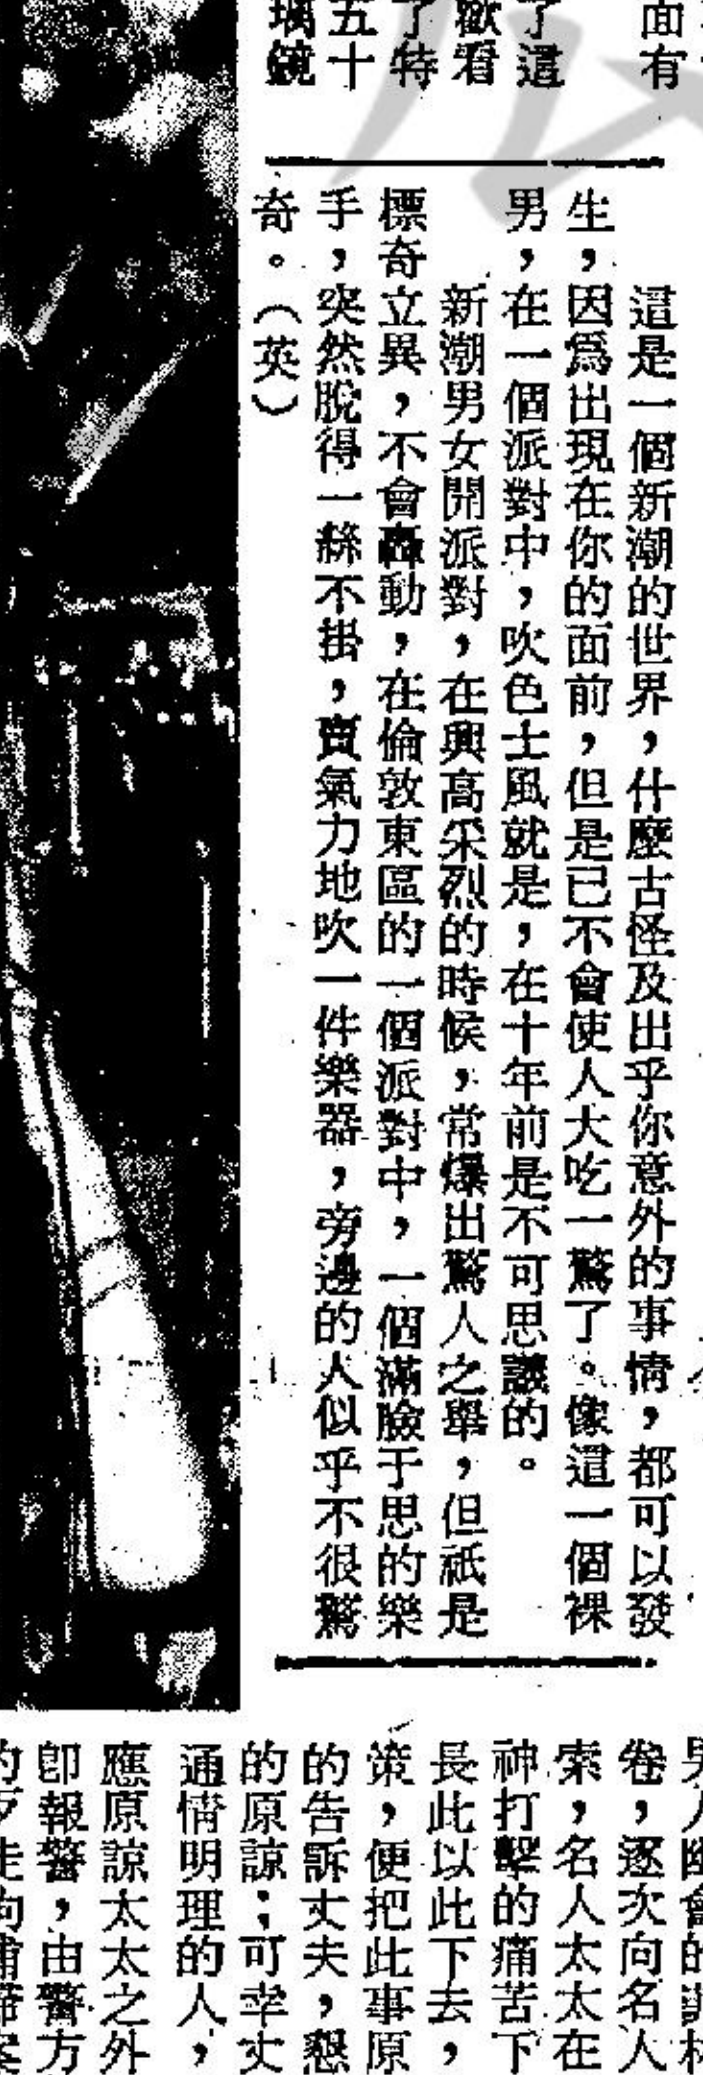 面有
了這
歡看
了特
五十
璃鏡
這是一個新潮的世界，什麼古怪及出乎你意外的事情，都可以發
生，因爲出現在你的面前，但是已不會使人大吃一驚了。像這一個裸
男，在一個派對中，吹色士風就是，在十年前是不可思議的。
新潮男女開派對，在興高采烈的時候，常爆出驚人之舉，但祇是
標奇立異，不會轟動，在倫敦東區的一個派對中，一個滿臉于思的樂
手，突然脫得一絲不掛，賣氣力地吹一件樂器，旁邊的人似乎不很驚
奇。（英）
男人幽會的
卷，逐次向名人
索，名人太太在
神打擊的痛苦下
長此以此下去，
策，便把此事原
的告訴丈夫，懇
的原諒；可幸丈
通情明理的人，
應原諒太太之外
卽報警，由警方